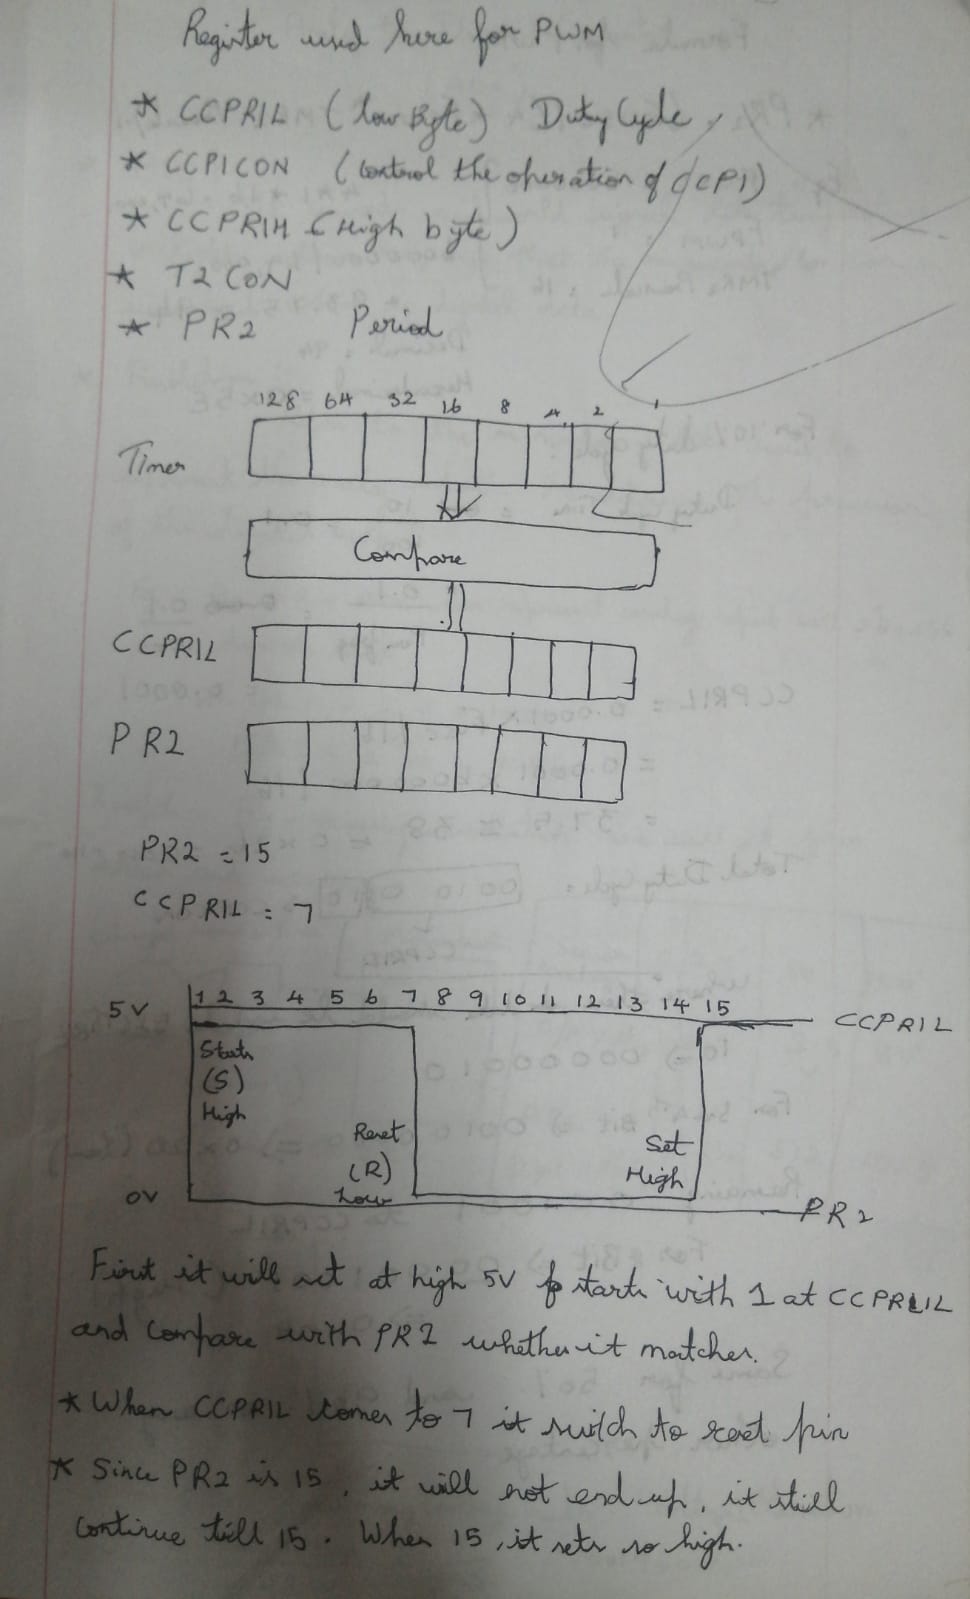 Register used here for PWM
* CCPR1L (low Byte) Duty Cycle
* CCP1CON (control the operation of CCP1)
* CCPR1H (High byte)
* T2 CON
* PR2 Period
128 64 32 16 8 4 2 1
Timer
Compare
CCPR1L
PR2
PR2 = 15
CCPR1L = 7
5V 1 2 3 4 5 6 7 8 9 10 11 12 13 14 15
CCPR1L
Starts
(S)
High
Reset
(R)
Low
Set
High
0V
PR2
First it will set at high 5V starts with 1 at CCPR1L
and compare with PR2 whether it matches.
* When CCPR1L comes to 7 it switch to reset pin
* Since PR2 is 15, it will not end up, it still
continue till 15. When 15, it sets so high.